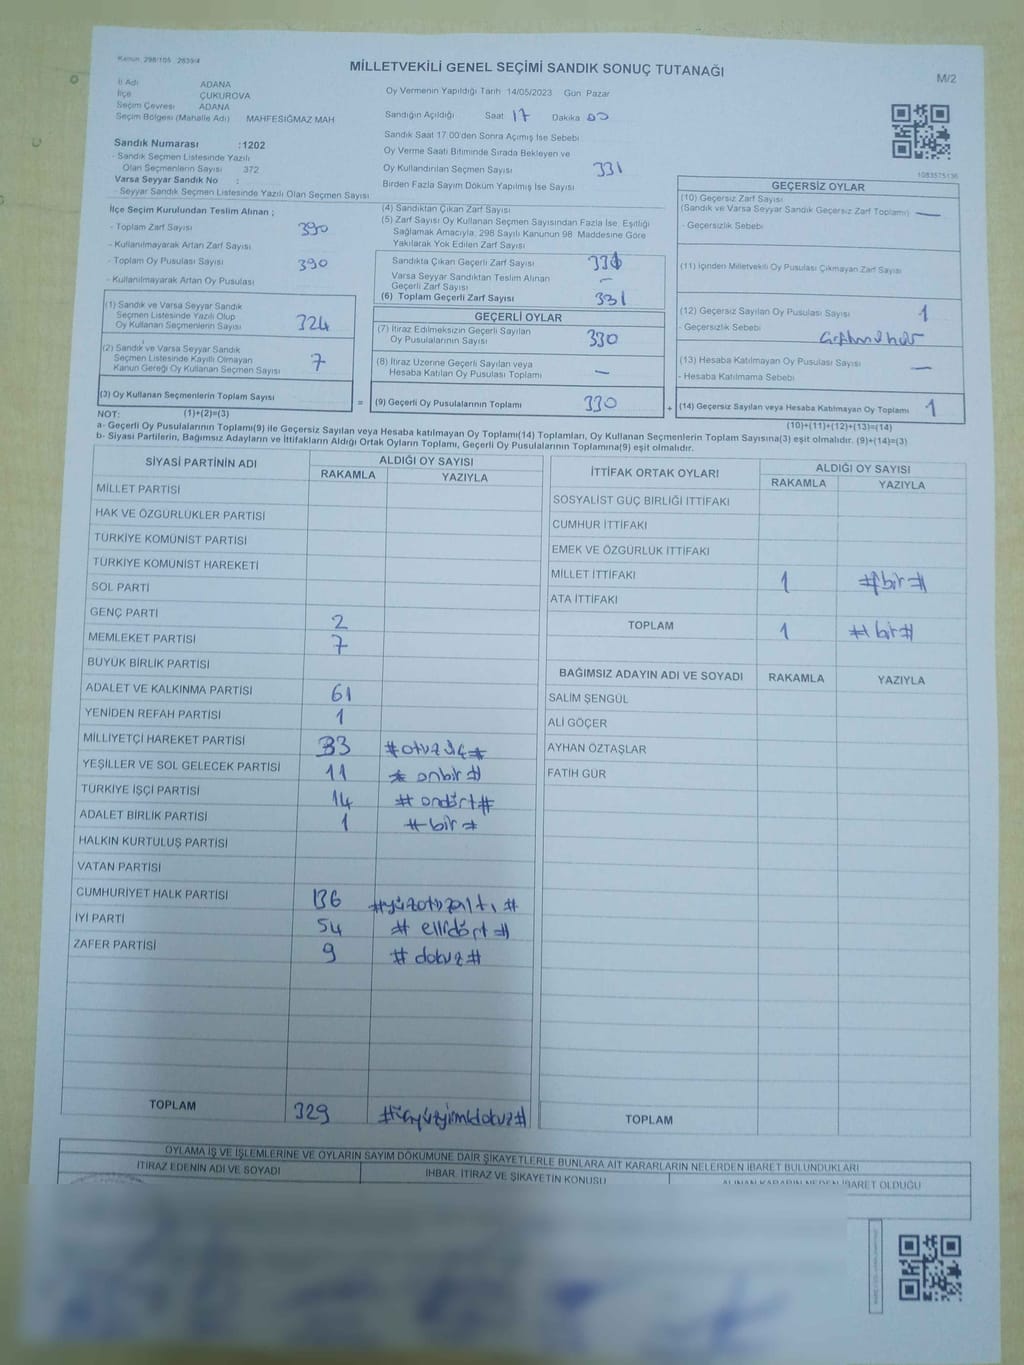 Kanun 298/105 2839/4
MİLLETVEKİLİ GENEL SEÇİMİ SANDIK SONUÇ TUTANAĞI
M/2
İl Adı ADANA
İlçe ÇUKUROVA
Seçim Çevresi ADANA
Seçim Bölgesi (Mahalle Adı) MAHFESIĞMAZ MAH
Oy Vermenin Yapıldığı Tarih 14/05/2023 Gün Pazar
Sandığın Açıldığı Saat 17 Dakika 00
Sandık Saat 17.00'den Sonra Açımış İse Sebebi
Oy Verme Saati Bitiminde Sırada Bekleyen ve
Oy Kullandırılan Seçmen Sayısı 331
Birden Fazla Sayım Döküm Yapılmış İse Sayısı
Sandık Numarası :1202
- Sandık Seçmen Listesinde Yazılı
Olan Seçmenlerin Sayısı 372
Varsa Seyyar Sandık No :
- Seyyar Sandık Seçmen Listesinde Yazılı Olan Seçmen Sayısı
1083575136
İlçe Seçim Kurulundan Teslim Alınan ;
- Toplam Zarf Sayısı 390
- Kullanılmayarak Artan Zarf Sayısı
- Toplam Oy Pusulası Sayısı 390
- Kullanılmayarak Artan Oy Pusulası
(1) Sandık ve Varsa Seyyar Sandık
Seçmen Listesinde Yazılı Olup
Oy Kullanan Seçmenlerin Sayısı 324
(2) Sandık ve Varsa Seyyar Sandık
Seçmen Listesinde Kayıtlı Olmayan
Kanun Gereği Oy Kullanan Seçmen Sayısı 7
(3) Oy Kullanan Seçmenlerin Toplam Sayısı =
(1)+(2)=(3)
(4) Sandıktan Çıkan Zarf Sayısı
(5) Zarf Sayısı Oy Kullanan Seçmen Sayısından Fazla İse, Eşitliği
Sağlamak Amacıyla, 298 Sayılı Kanunun 98 Maddesine Göre
Yakılarak Yok Edilen Zarf Sayısı
Sandıkta Çıkan Geçerli Zarf Sayısı 331
Varsa Seyyar Sandıktan Teslim Alınan
Geçerli Zarf Sayısı –
(6) Toplam Geçerli Zarf Sayısı 331
GEÇERLİ OYLAR
(7) İtiraz Edilmeksizin Geçerli Sayılan
Oy Pusulalarının Sayısı 330
(8) İtiraz Üzerine Geçerli Sayılan veya
Hesaba Katılan Oy Pusulası Toplamı —
(9) Geçerli Oy Pusulalarının Toplamı 330 +
GEÇERSİZ OYLAR
(10) Geçersiz Zarf Sayısı
(Sandık ve Varsa Seyyar Sandık Geçersiz Zarf Toplamı) —
- Geçersizlik Sebebi
(11) İçinden Milletvekili Oy Pusulası Çıkmayan Zarf Sayısı
(12) Geçersiz Sayılan Oy Pusulası Sayısı 1
- Geçersizlik Sebebi
(13) Hesaba Katılmayan Oy Pusulası Sayısı —
- Hesaba Katılmama Sebebi
(14) Geçersiz Sayılan veya Hesaba Katılmayan Oy Toplamı 1
(10)+(11)+(12)+(13)=(14)
NOT:
a- Geçerli Oy Pusulalarının Toplamı(9) ile Geçersiz Sayılan veya Hesaba katılmayan Oy Toplamı(14) Toplamları, Oy Kullanan Seçmenlerin Toplam Sayısına(3) eşit olmalıdır. (9)+(14)=(3)
b- Siyasi Partilerin, Bağımsız Adayların ve İttifakların Aldığı Ortak Oyların Toplamı, Geçerli Oy Pusulalarının Toplamına(9) eşit olmalıdır.
SİYASİ PARTİNİN ADI ALDIĞI OY SAYISI
RAKAMLA YAZIYLA
MİLLET PARTİSİ
HAK VE ÖZGÜRLÜKLER PARTİSİ
TÜRKİYE KOMÜNİST PARTİSİ
TÜRKİYE KOMÜNİST HAREKETİ
SOL PARTİ
GENÇ PARTİ 2
MEMLEKET PARTİSİ 7
BÜYÜK BİRLİK PARTİSİ
ADALET VE KALKINMA PARTİSİ 61
YENİDEN REFAH PARTİSİ 1
MİLLİYETÇİ HAREKET PARTİSİ 33 #otuzüç#
YEŞİLLER VE SOL GELECEK PARTİSİ 11 # onbir #
TÜRKİYE İŞÇİ PARTİSİ 14 # ondört #
ADALET BİRLİK PARTİSİ 1 # bir #
HALKIN KURTULUŞ PARTİSİ
VATAN PARTİSİ
CUMHURİYET HALK PARTİSİ 136 #yüzotuzaltı #
İYİ PARTİ 54 # ellidört #
ZAFER PARTİSİ 9 # dokuz #
TOPLAM 329 #üçyüzyirmidokuz#
İTTİFAK ORTAK OYLARI ALDIĞI OY SAYISI
RAKAMLA YAZIYLA
SOSYALİST GÜÇ BİRLİĞİ İTTİFAKI
CUMHUR İTTİFAKI
EMEK VE ÖZGÜRLÜK İTTİFAKI
MİLLET İTTİFAKI 1 # bir #
ATA İTTİFAKI
TOPLAM 1 # bir #
BAĞIMSIZ ADAYIN ADI VE SOYADI RAKAMLA YAZIYLA
SALİM ŞENGÜL
ALİ GÖÇER
AYHAN ÖZTAŞLAR
FATİH GÜR
TOPLAM
OYLAMA İŞ VE İŞLEMLERİNE VE OYLARIN SAYIM DÖKÜMÜNE DAİR ŞİKAYETLERLE BUNLARA AİT KARARLARIN NELERDEN İBARET BULUNDUKLARI
İTİRAZ EDENİN ADI VE SOYADI
İHBAR, İTİRAZ VE ŞİKAYETİN KONUSU
ALINAN KARARIN NEDEN İBARET OLDUĞU